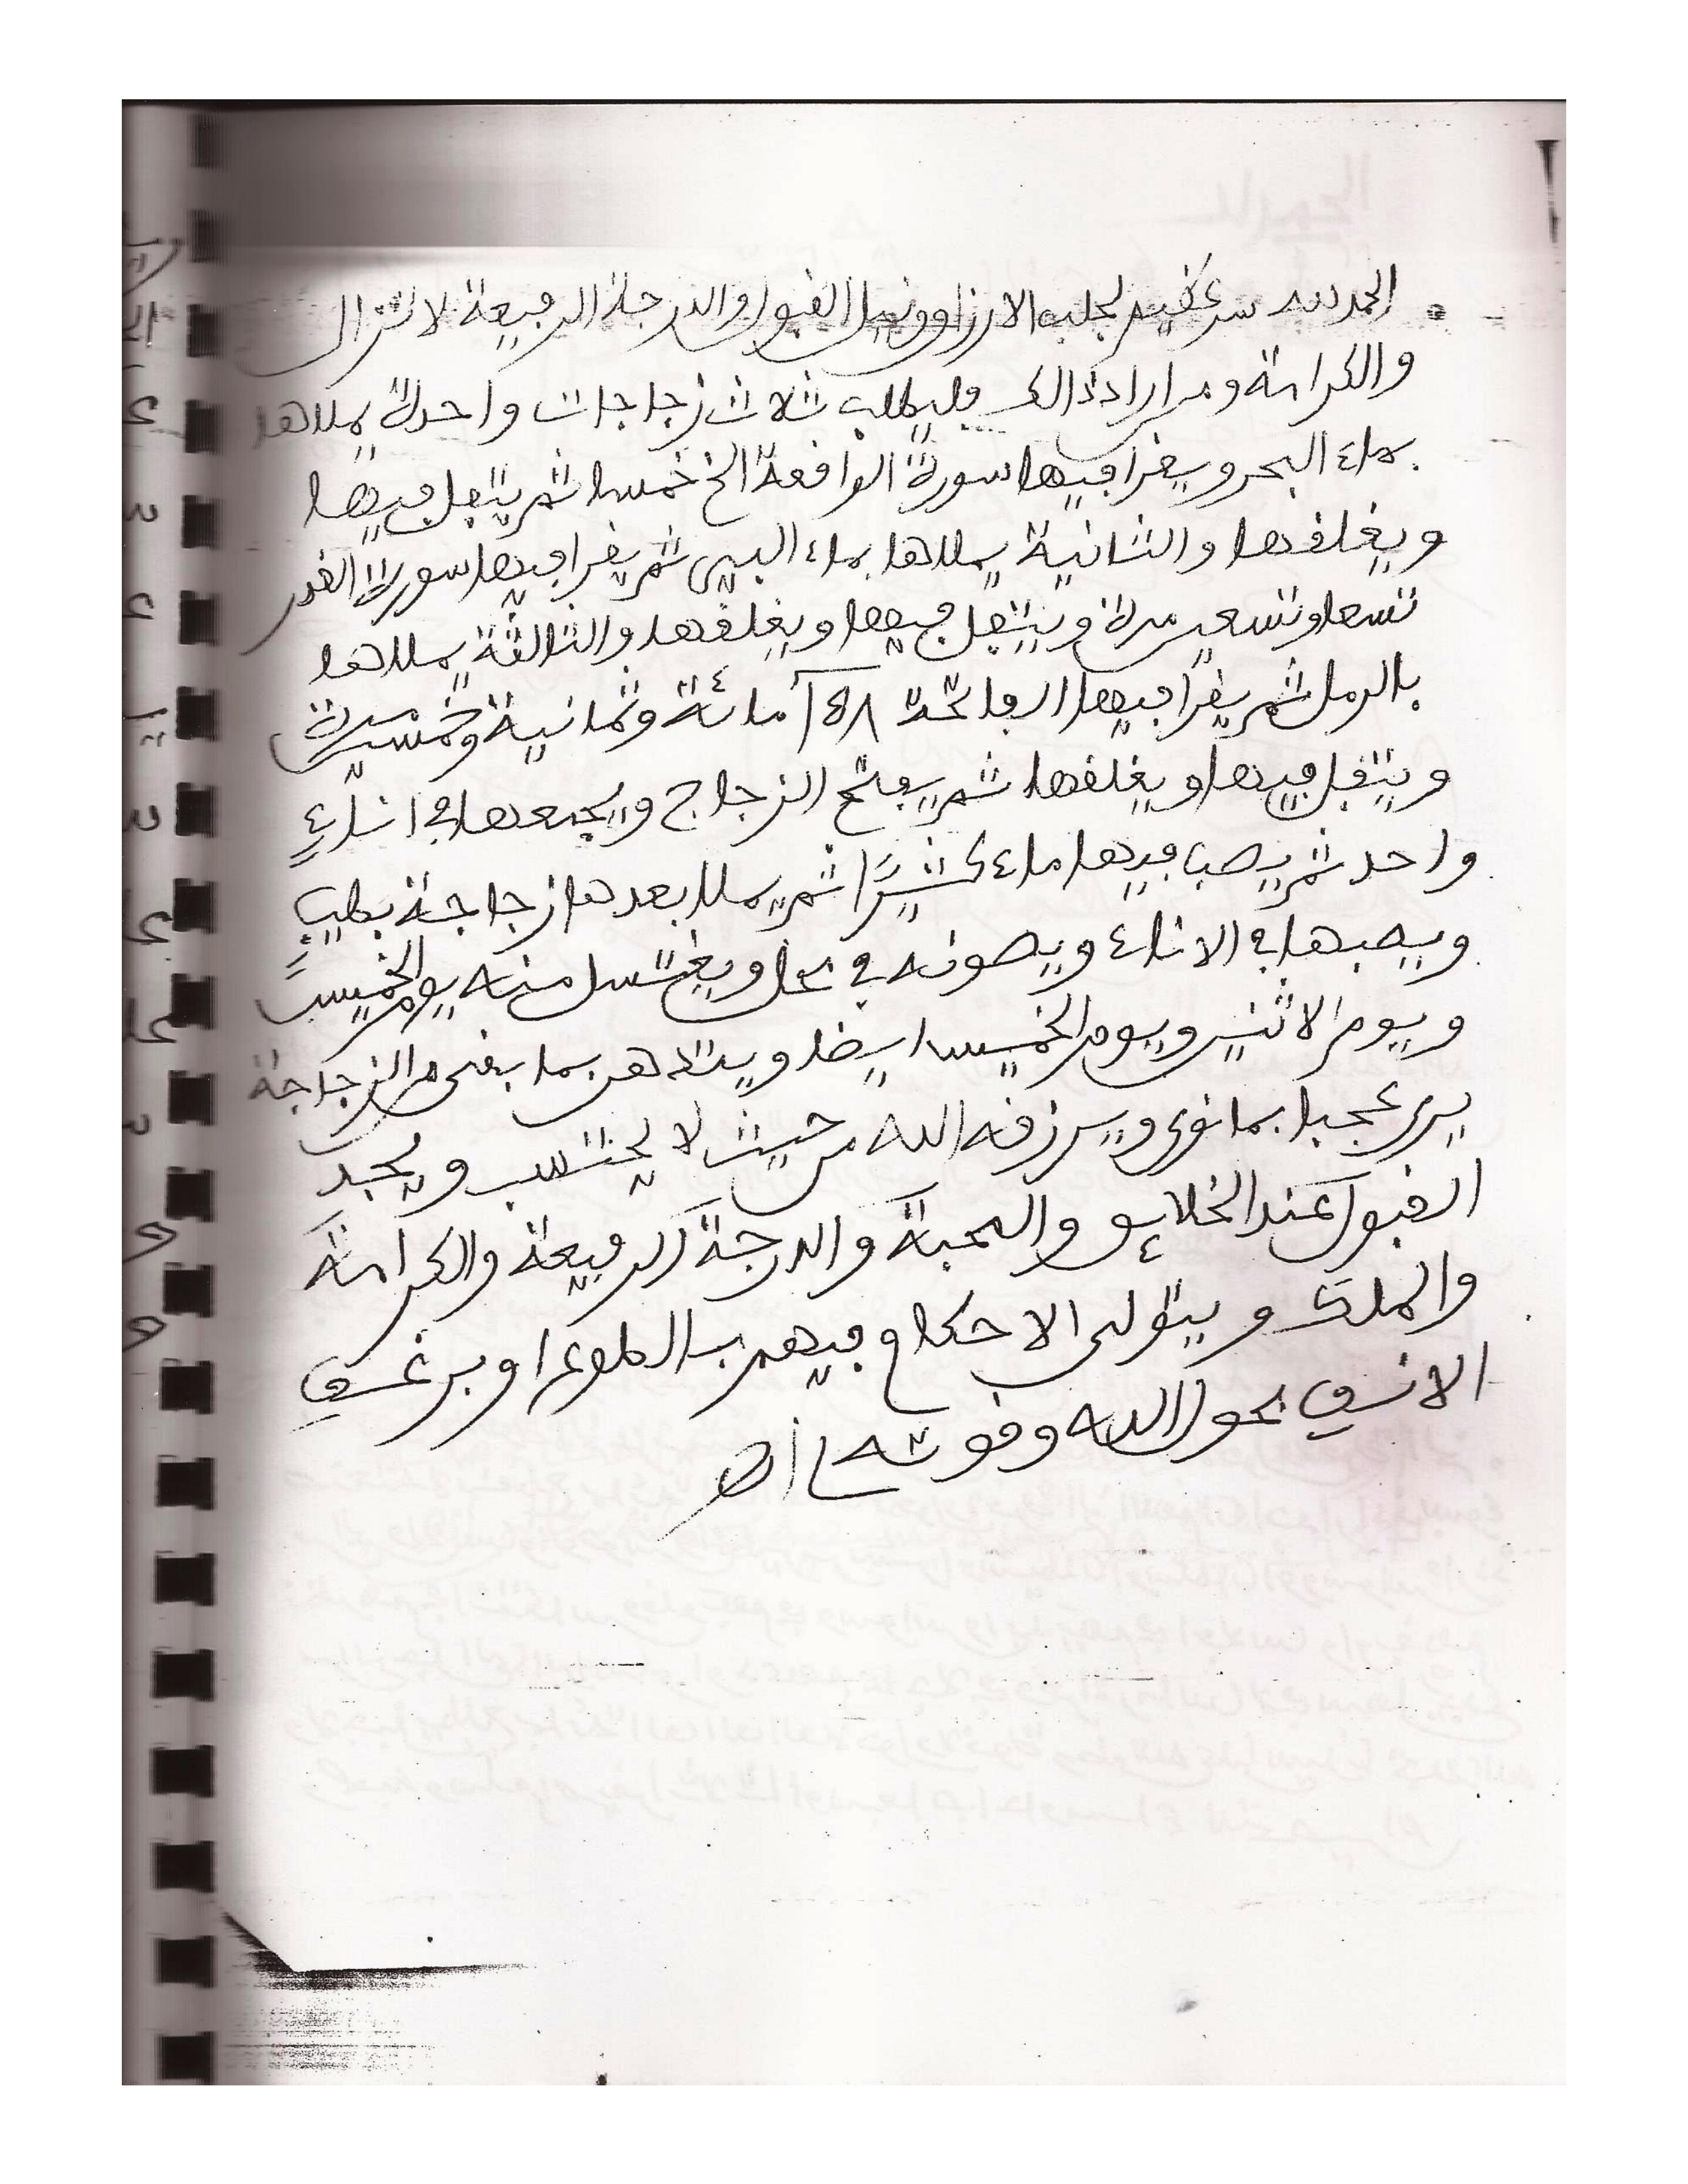 الحمد لله سر عظيم لجلب الارزاق ونيل القبول والدرجة الرفيعة لا تزال
والكرامة ومن اراد ذالك فليطلب ثلاث زجاجات واحدة يملاها
بماء البحر ويقرا فيها سورة الواقعة الخ خمسا ثم يتفل فيها
ويغلقها والثانية يملاها بماء البير ثم يقرا فيها سورة القدر
تسعا وتسعين مرة ويتفل فيها ويغلقها والثالثة يملاها
بالرمل ثم يقرا فيها الفاتحة ١٥٨ مائة وثمانية وخمسين مرة
ويتفل فيها ويغلقها ثم يفتح الزجاج ويجمعها في اناءٍ
واحد ثم يصب فيها ماء كثيرًا ثم يملا بعدها زجاجة بطيب
ويصبها في الاناء ويصونه في محل ويغتسل منه يوم الخميس
ويوم الاثنين ويوم الخميس ايضا ويتدهن بما بقى من الزجاجة
يرى عجبا بما نوى ويرزقه الله من حيث لا يحتسب ويجد
القبول عند الخلايق والمحبة والدرجة الرفيعة والكرامة
والملك ويتولى الاحكام فيهم بالطوع او برغم
الانف بحول الله وقوته اه